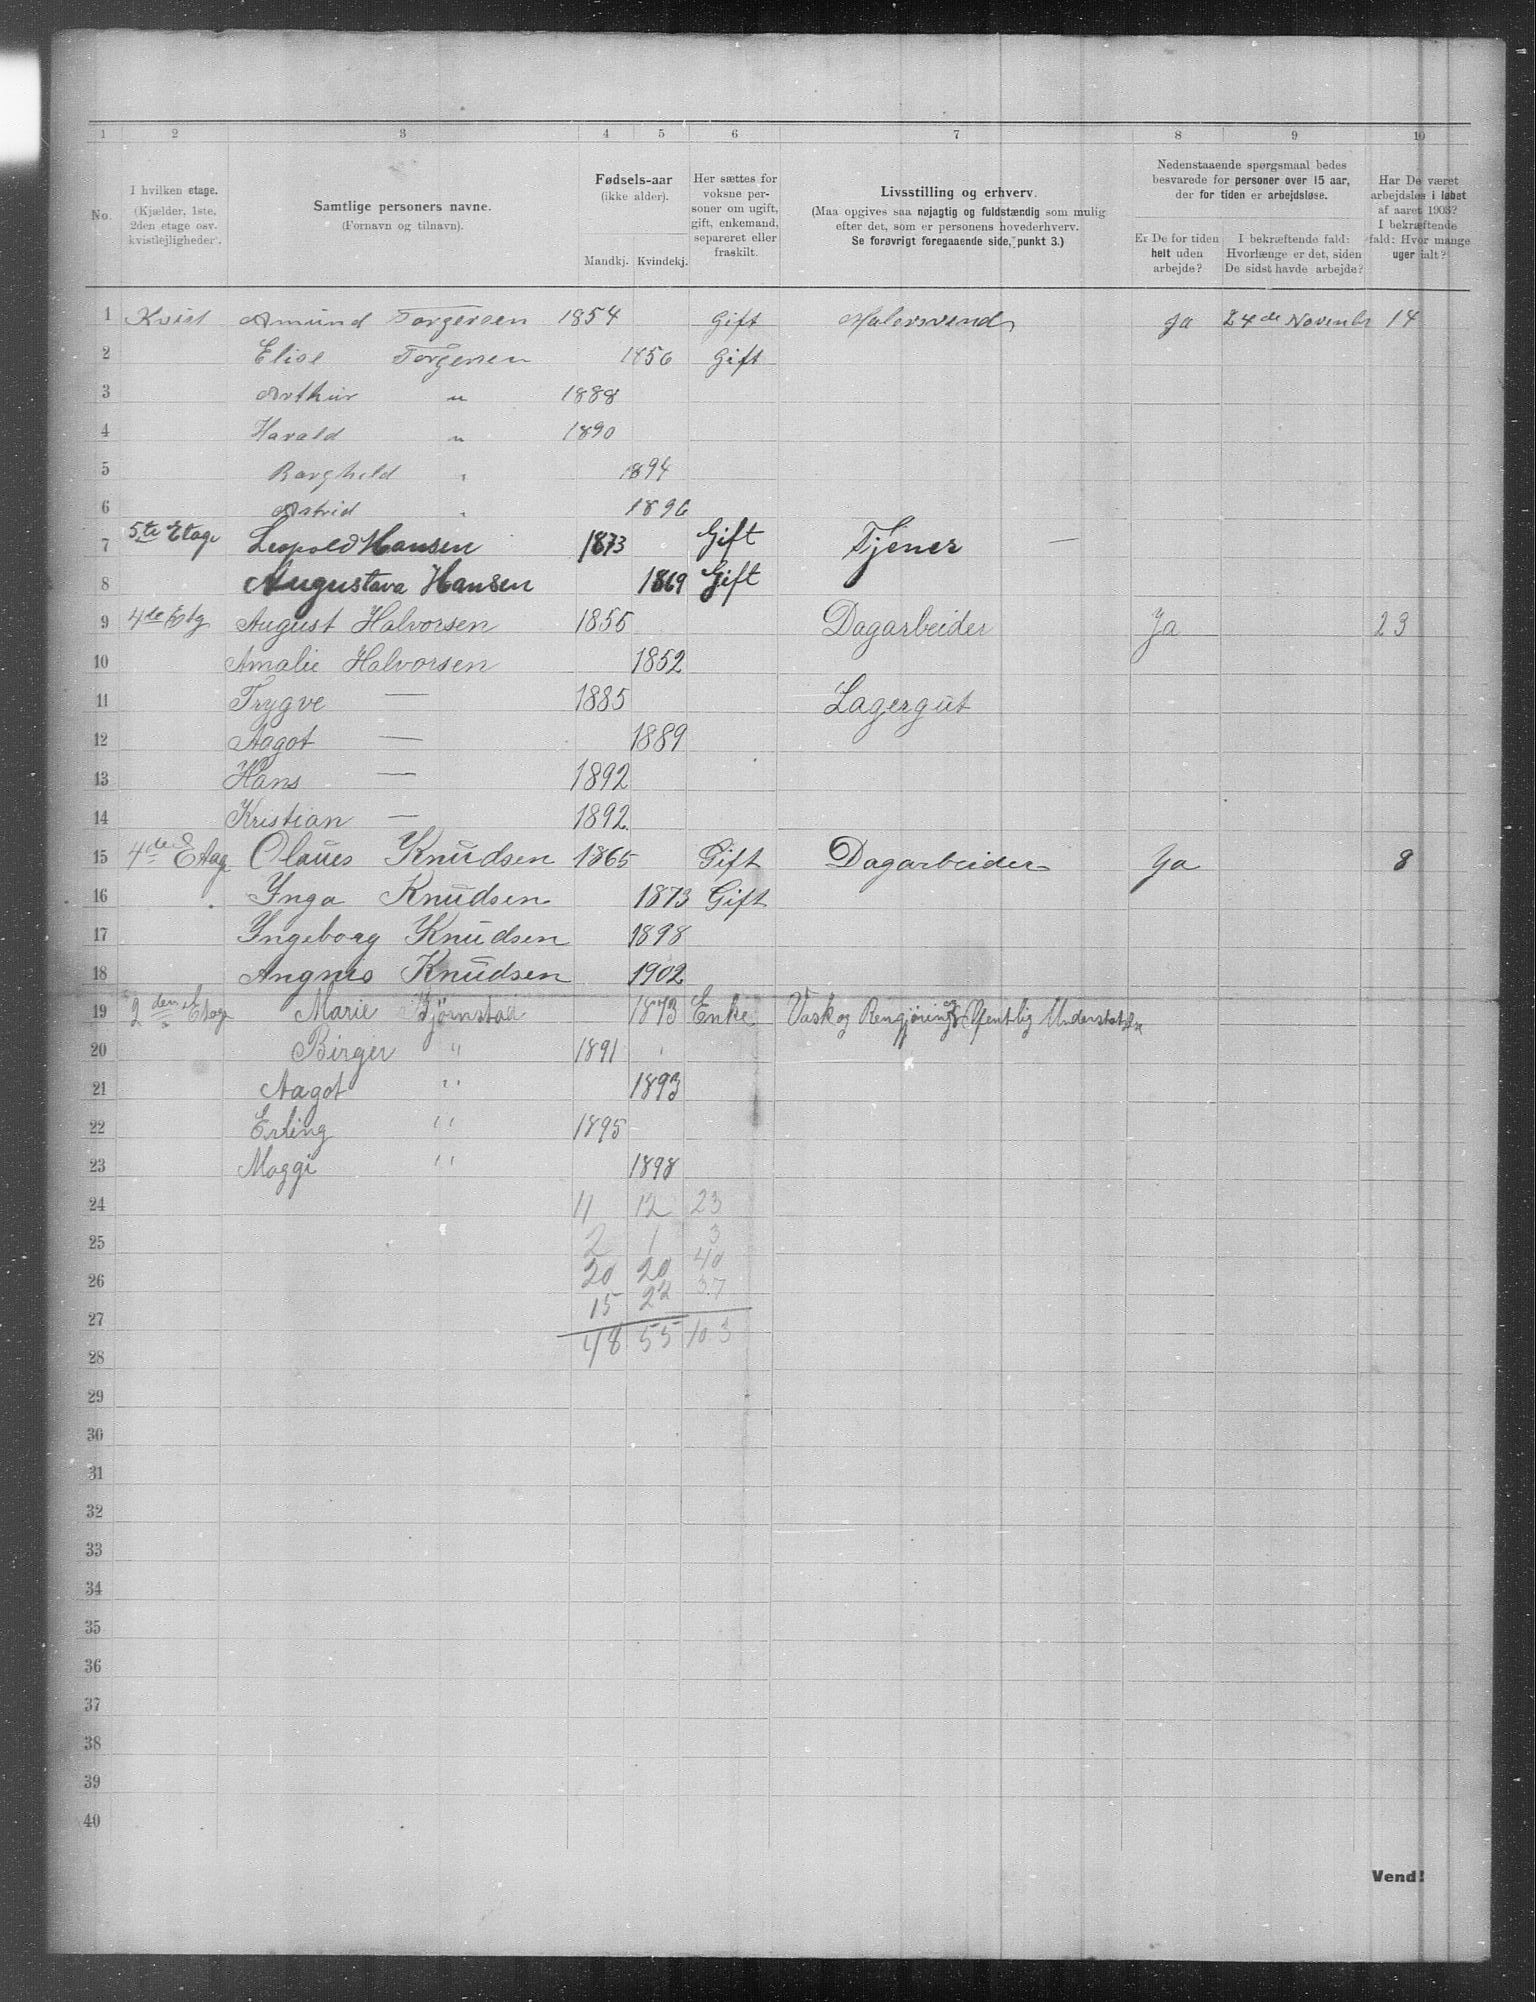 1 2 3 4 5 6 7 8 9 10
No.
I hvilken etage.
(Kjælder, 1ste,
2den etage osv.
kvistlejligheder).
Samtlige personers navne.
(Fornavn og tilnavn).
Fødsels-aar
(ikke alder).
Mandkj. Kvindekj.
Her sættes for
voksne per-
soner om ugift,
gift, enkemand,
separeret eller
fraskilt.
Livsstilling og erhverv.
(Maa opgives saa nøjagtig og fuldstændig som mulig
efter det, som er personens hovederhverv.
Se forøvrigt foregaaende side, punkt 3.)
Nedenstaaende spørgsmaal bedes
besvarede for personer over 15 aar,
der for tiden er arbejdsløse.
Er De for tiden
helt uden
arbejde?
I bekræftende fald:
Hvorlænge er det, siden
De sidst havde arbejde?
Har De været
arbejdsløs i løbet
af aaret 1903?
I bekræftende
fald: Hvor mange
uger ialt?
1 Kvist Amund Torgersen 1854 Gift Malersvend Ja 24de Novembr 14
2 Elise Torgersen 1856 Gift
3 Arthur " 1888
4 Harald " 1890
5 Borghild " 1894
6 Astrid " 1896
7 5te Etage Leopold Hansen 1873 Gift Tjener —
8 Augustava Hansen 1869 Gift
9 4de Etg August Halvorsen 1855 Dagarbeider Ja 23
10 Amalie Halvorsen 1852
11 Trygve — 1885 Lagergut
12 Aagot — 1889
13 Hans — 1892
14 Kristian — 1892.
15 4de Etag Olaues Knudsen 1865 Gift Dagarbeider Ja 8
16 Ynga Knudsen 1873 Gift
17 Yngeborg Knudsen 1898
18 Angnes Knudsen 1902
19 2den Etage Marie Bjørnstad 1873 Enke Vask og Rengjøring og Ofentlig
20 Birger " 1891
21 Aagot " 1893
22 Erling " 1895
23 Maggi " 1898
24 11 12 23
25 2 1 3
26 20 20 40
27 15 22 37
28 48 55 103
29
30
31
32
33
34
35
36
37
38
39
40
Vend!